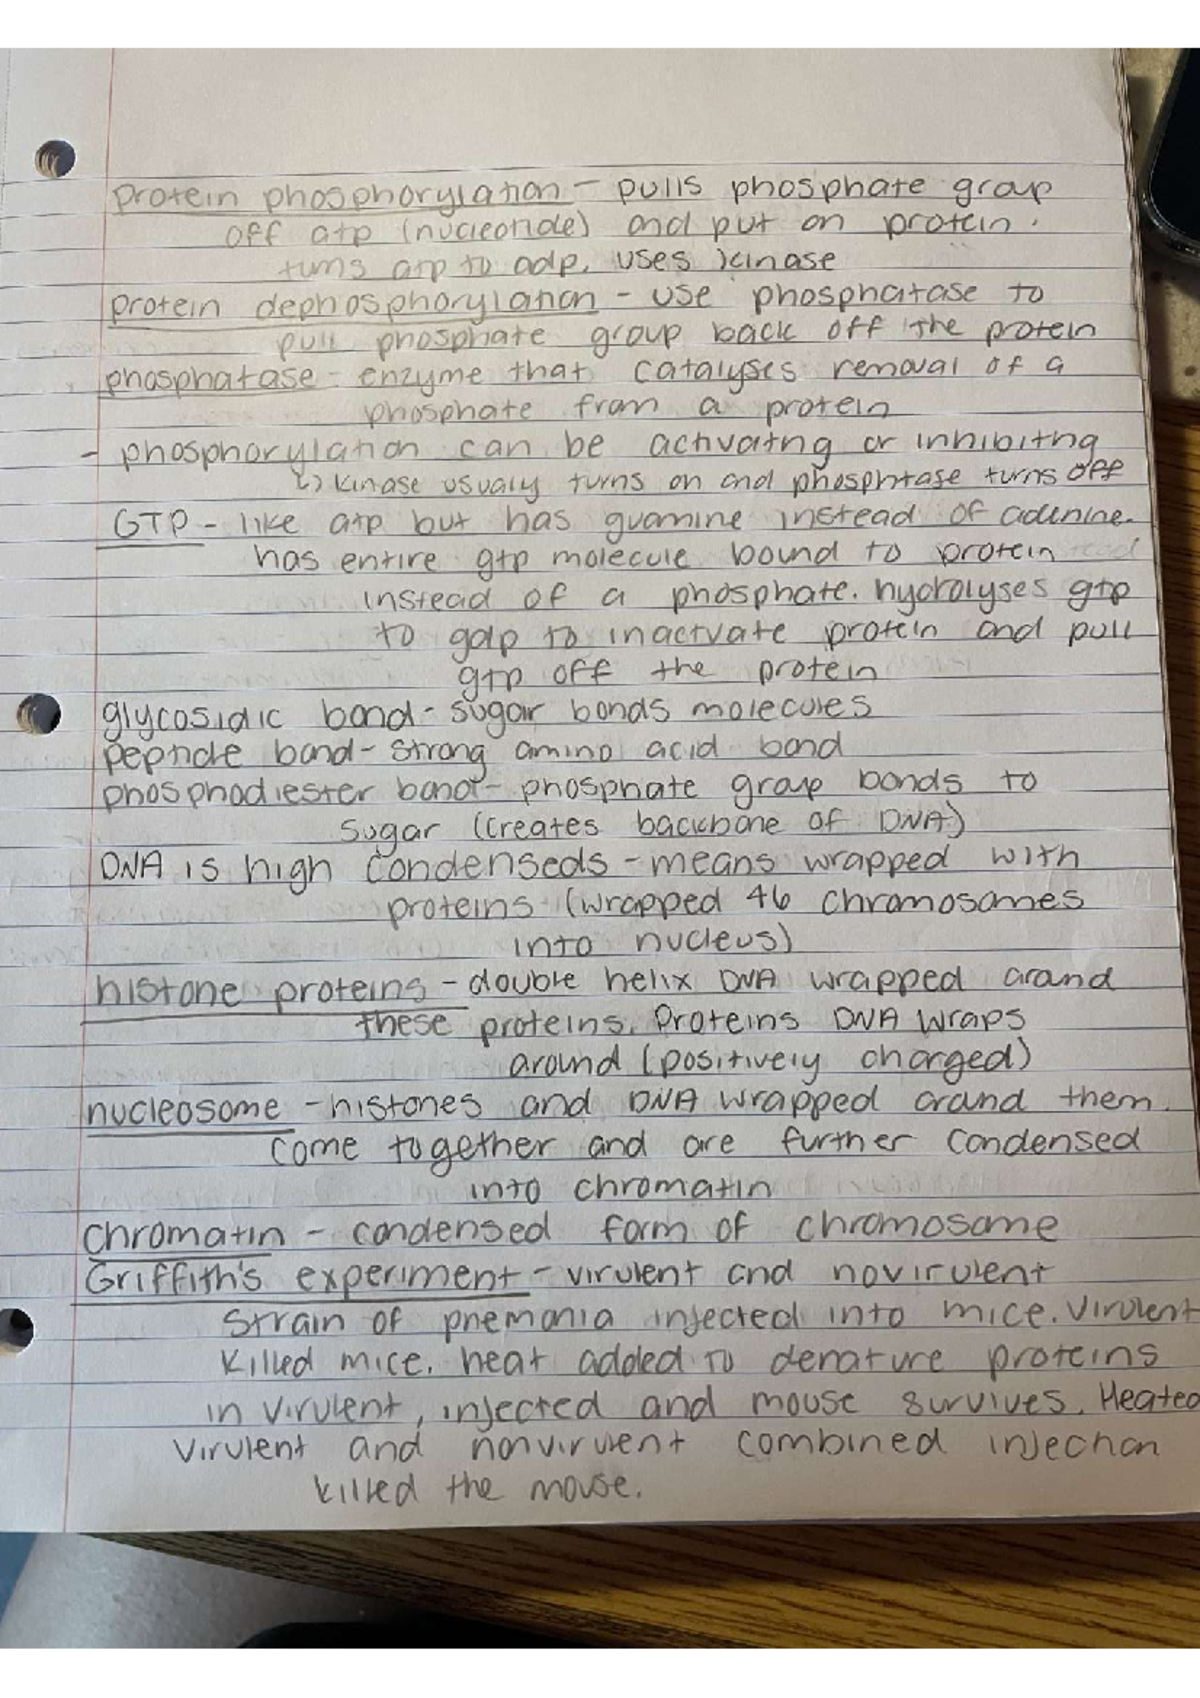 protein phosphorylation - pulls phosphate group
off atp (nucleotide) and put on protein.
turns atp to adp. uses kinase
protein dephosphorylation - use phosphatase to
pull phosphate group back off the protein
phosphatase - enzyme that catalyses removal of a
phosphate from a protein
- phosphorylation can be activating or inhibiting
↳ kinase usualy turns on and phosphtase turns off
GTP - like atp but has guamine instead of adinine.
has entire gtp molecule bound to protein
instead of a phosphate. hydrolyses gtp
to gdp to inactvate protein and pull
gtp off the protein
glycosidic bond - sugar bonds molecules
peptide bond - strong amino acid bond
phosphodiester bond - phosphate group bonds to
sugar (creates backbone of DNA)
DNA is high condenseds - means wrapped with
proteins (wrapped 46 chromosomes
into nucleus)
histone proteins - double helix DNA wrapped around
these proteins. Proteins DNA wraps
around (positively charged)
nucleosome - histones and DNA wrapped around them.
come together and are further condensed
into chromatin
chromatin - condensed form of chromosome
Griffith's experiment - virulent and novirulent
strain of pnemonia injected into mice. Virulent
killed mice. heat added to denature proteins
in virulent, injected and mouse survives. Heated
virulent and nonvirulent combined injection
killed the mouse.